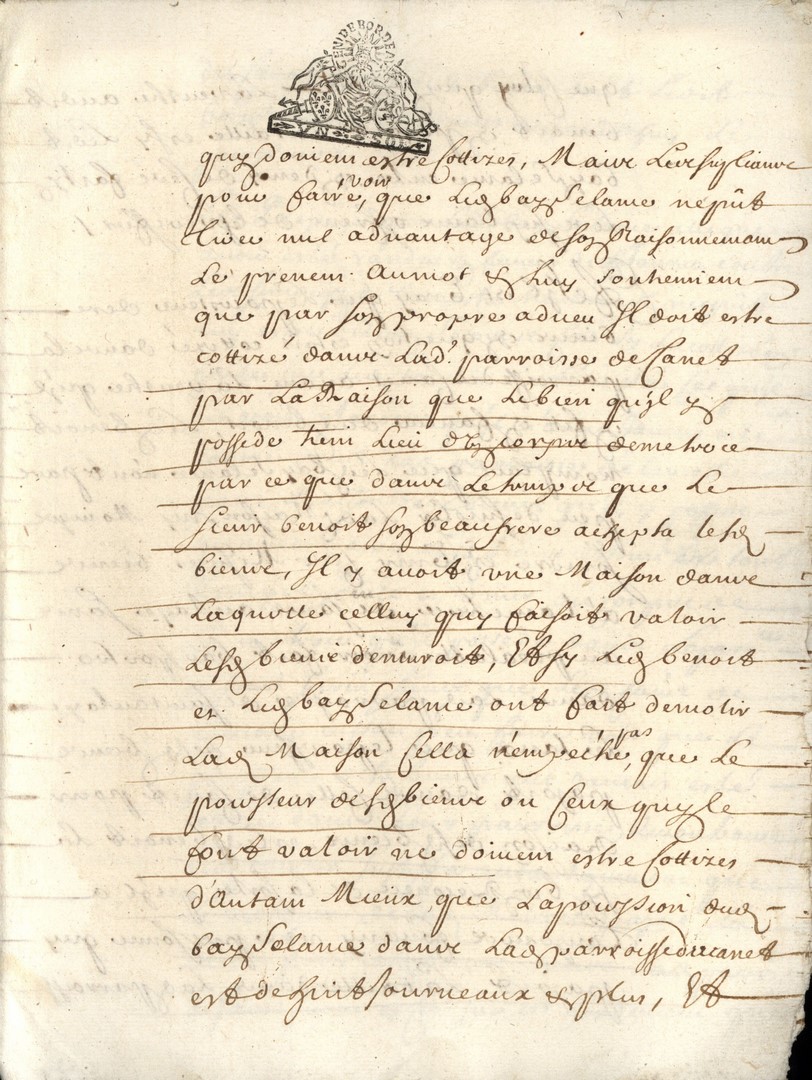 GEN. DE BORDEAUX
VN SOL
quy doivent estre Cottizes, Mais Les supliants
pour faire voir, que Led bayselame ne put
tirer nul advantage de son Raisonnement
Le prenent Aumot & luy soutiennent
que par son propre adveu Il doit estre
cottizé dans Lad. parroisse de Canet
par La Raison que Le bien quyl y
possede tient Lieu d'un corps de metrie
par ce que dans Le temps que Le
sieur benoit son beaufrere achepta lesd
biens, Il y avoit une Maison dans
Laquelle celluy quy faisoit valoir
Lesd biens demuroit, Et sy Led benoit
et Led bayselame ont fait demolir
Lad Maison Cella n'empeche pas, que Le
possesseur desd biens ou Ceux quy le
font valoir ne doivent estre Cottizes
d'Autant Mieux que La possession dud
bayselame dans Lad parroisse du canet
est de huit Journeaux & plus, Et